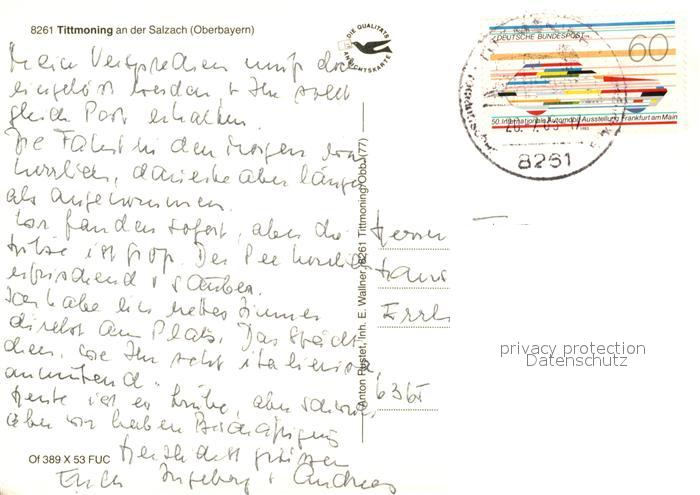 8261 Tittmoning an der Salzach (Oberbayern)
DIE QUALITÄTS ANSICHTSKARTE
DEUTSCHE BUNDESPOST
60
50. Internationale Automobil-Ausstellung Frankfurt am Main
8261
Mein Versprechen muß doch
eingelöst werden, Ihr sollt
gleich Post erhalten.
Die Fahrt in den Morgen war
herrlich, dauerte aber länger
als angenommen.
Wir fanden sofort, aber die
Hitze ist groß. Der See herrlich
erfrischend + sauber.
Ich habe ein nettes Zimmer
direkt am Platz. Das Städt
chen, wie Ihr seht italienisch
anmutend.
Heute ist es trübe, aber schwül,
aber wir haben Beschäftigung
Herzlichst grüßen
Erich Ingeborg + Andreas
Herrn
Hans
6365
Anton Pustet, Inh. E. Wallner, 8261 Tittmoning/Obb. (77)
Of 389 X 53 FUC
privacy protection
Datenschutz